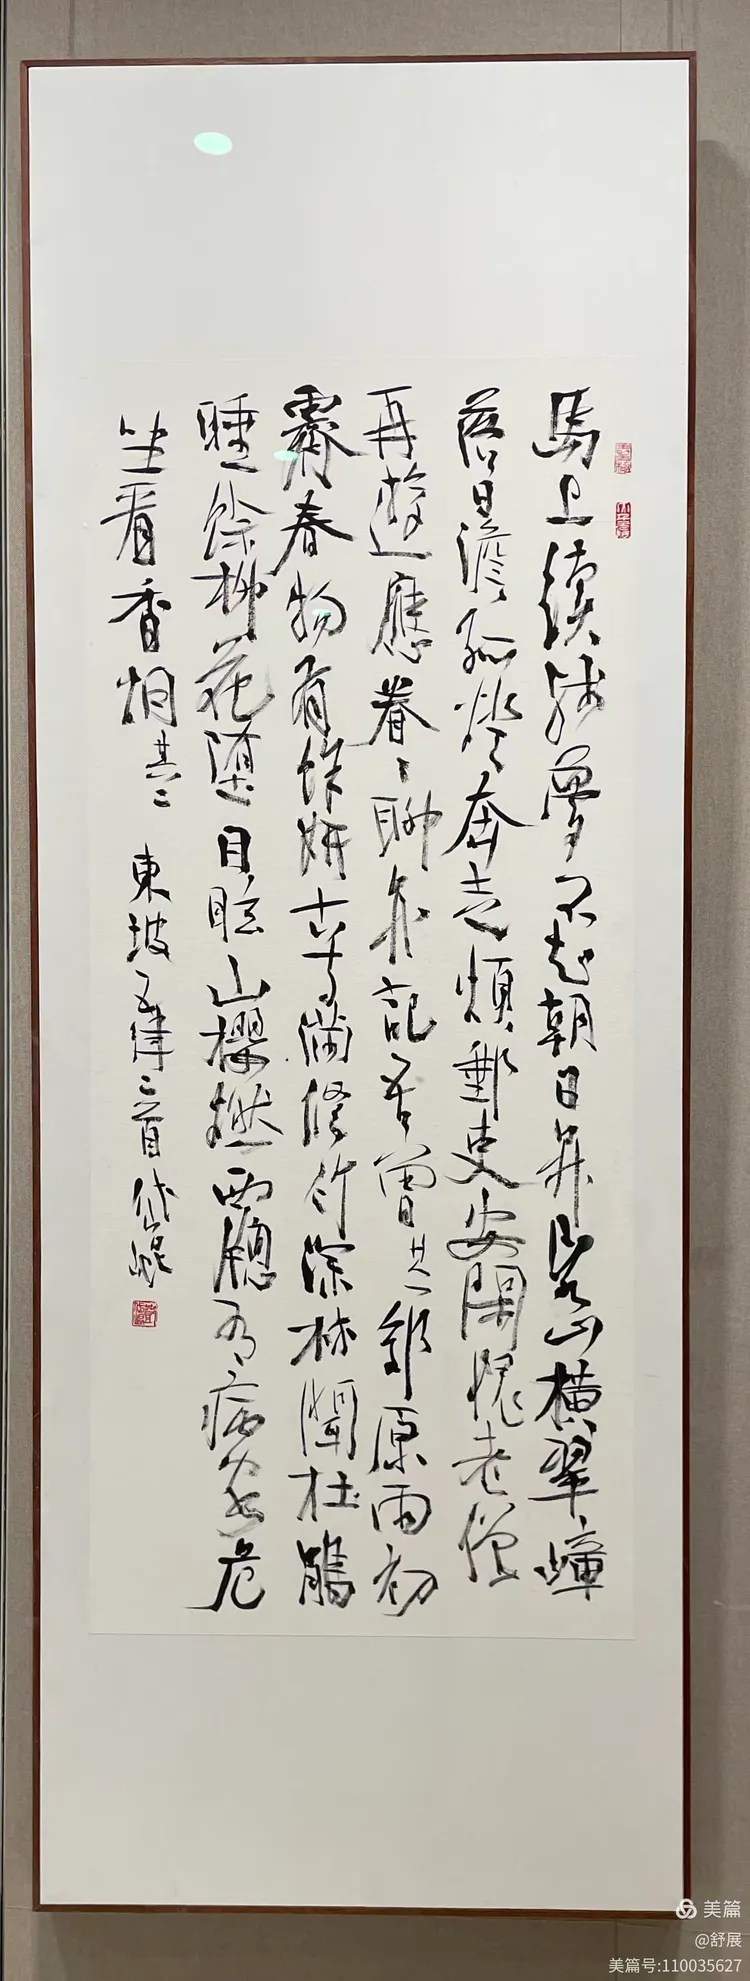 馬上續殘夢不知朝日昇亂山橫翠嶂
落日澹孤燈奔走煩郵吏安閑愧老僧
再遊應眷〻聊亦記吾曾其一郊原雨初
霽春物有餘妍古寺滿修竹深林聞杜鵑
睡餘柳花墮目眩山櫻燃西牕有病客危
坐看香烟其二 東坡五律二首
美篇
@舒展
美篇号:110035627